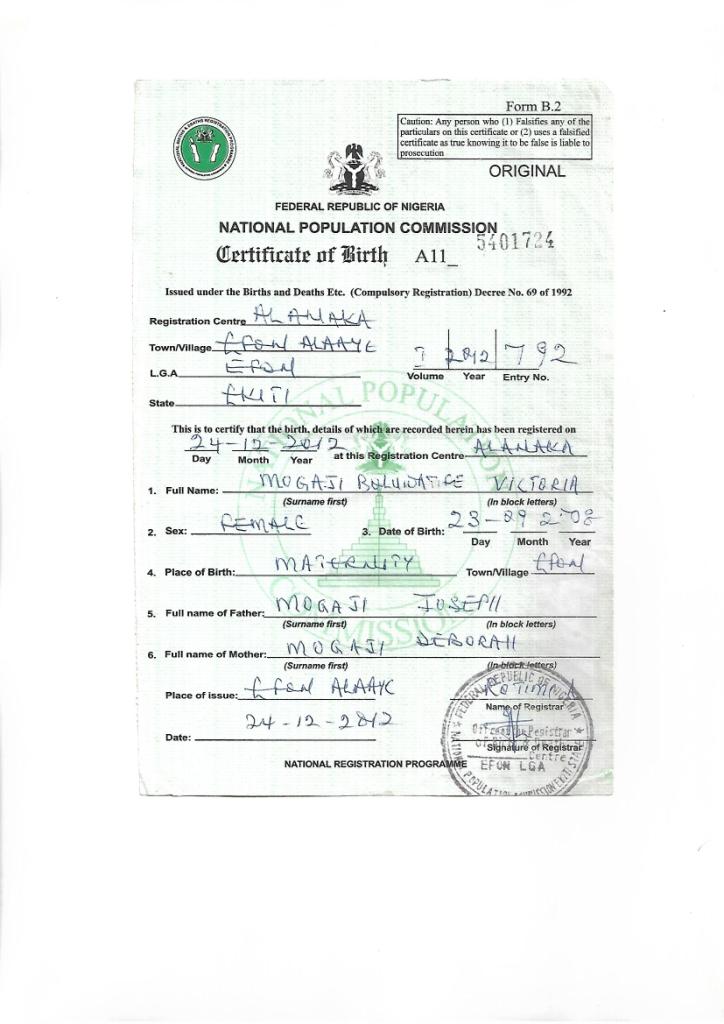 Form B.2
Caution: Any person who (1) Falsifies any of the
particulars on this certificate or (2) uses a falsified
certificate as true knowing it to be false is liable to
prosecution
ORIGINAL
FEDERAL REPUBLIC OF NIGERIA
NATIONAL POPULATION COMMISSION
Certificate of Birth A11_ 5401724
Issued under the Births and Deaths Etc. (Compulsory Registration) Decree No. 69 of 1992
Registration Centre ALANAKA
Town/Village EFON ALAAYE
L.G.A EFON
2012 792
Volume Year Entry No.
State EKITI
This is to certify that the birth, details of which are recorded herein has been registered on
24-12-2012 at this Registration Centre ALANAKA
Day Month Year
1. Full Name: MOGAJI BOLUWATIFE VICTORIA
(Surname first) (In block letters)
2. Sex: FEMALE 3. Date of Birth: 23-09 2008
Day Month Year
4. Place of Birth: MATERNITY Town/Village EFON
5. Full name of Father: MOGAJI JOSEPH
(Surname first) (In block letters)
6. Full name of Mother: MOGAJI DEBORAH
(Surname first) (In block letters)
Place of issue: EFON ALAAYE
Name of Registrar
Date: 24-12-2012
Signature of Registrar
NATIONAL REGISTRATION PROGRAMME
NATIONAL POPULATION COMMISSION
FEDERAL REPUBLIC OF NIGERIA
Centre
EFON LGA